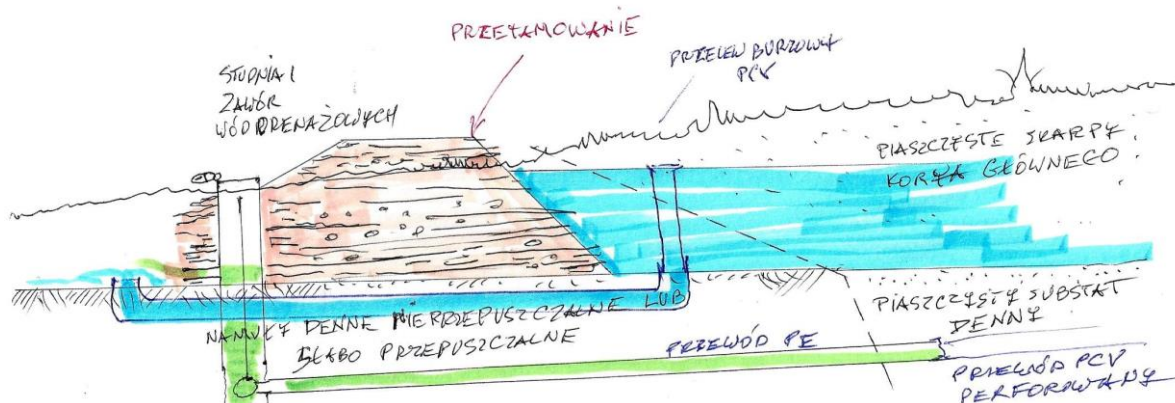 PRZETAMOWANIE
PRZELEW BURZOWY
PCV
STUDNIA I
ZAWÓR
WÓD DRENAŻOWYCH
PIASZCZYSTE SKARPY
KORYTA GŁÓWNEGO
NAMUŁY DENNE NIERZEPUSZCZALNE LUB
SŁABO PRZEPUSZCZALNE
PIASZCZYSTY SUBSTAT
DENNY
PRZEWÓD PE
PRZEWÓD PCV
PERFOROWANY